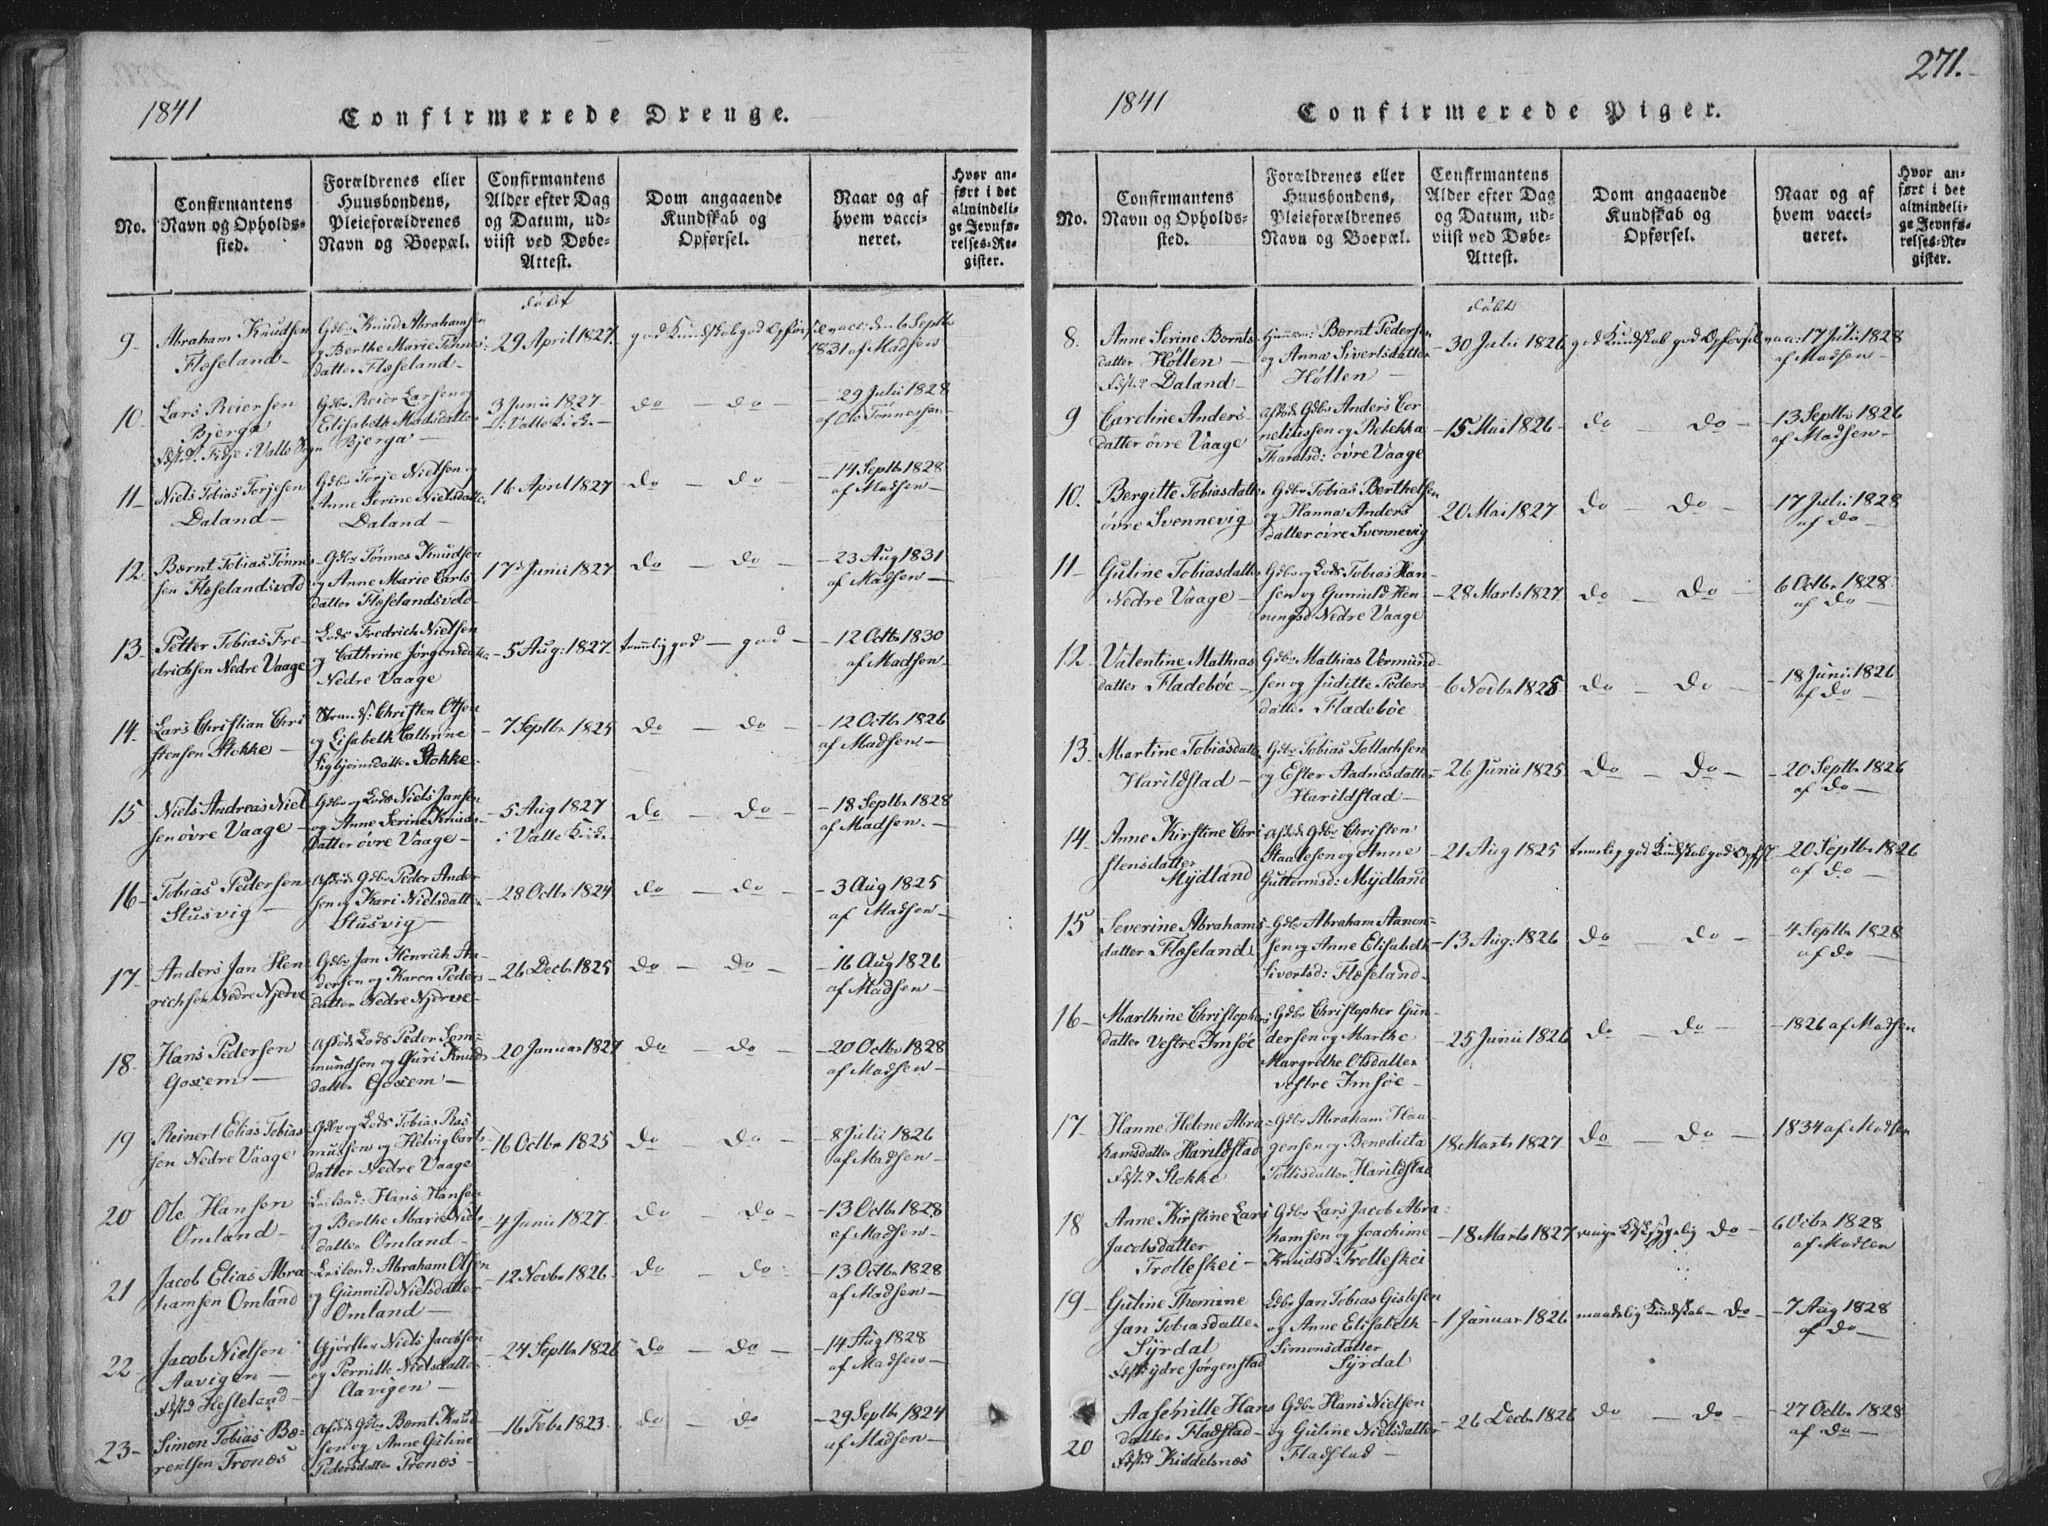 271.
1841
Confirmerede Drenge.
No.
Confirmantens
Navn og Opholds-
sted.
Forældrenes eller
Huusbondens,
Pleieforældrenes
Navn og Boepæl.
Confirmantens
Alder efter Dag
og Datum, ud-
viist ved Døbe-
Attest.
Dom angaaende
Kundskab og
Opførsel.
Naar og af
hvem vacci-
neret.
Hvor an-
ført i det
almindeli-
ge Jevnfø-
relses-Re-
gister.
døbt
9- Abraham Knudsen
Floseland-
Gdbr Knud Abrahamsen
og Berthe Marie Tønnes-
datter Floseland-
29 April 1827
god Kundskab god Opførsel
vacc: den 6 Septb
1831 af Madsen
10. Lars Reiersen
Bjerga
Gdbr Reier Larsen og
Elisabeth Madsdatter
Bjerga-
3 Junii 1827-
do - do -
-29 Julii 1828
af Ole Tønnessen-
11- Niels Tobias Torjesen
Daland-
Gdbr Torje Nielsen og
Anne Serine Nielsdatter
Daland-
16 April 1827
do - do -
-14 Septb 1828
af Madsen-
12. Bernt Tobias Tønne-
sen Floselandsvold
Gdbr Tønnes Knudsen
og Anne Marie Carls
datter Floselandsvold-
17de Junii 1827
do - do -
-23 Aug 1831
af Madsen-
13- Petter Tobias Fre-
drichsen Nedre Vaage
Lods Fredrich Nielsen
og Cathrine Jørgensdatter
Nedre Vaage
-5 Aug: 1827-
temmelig god - god -
-12 Octb 1830
af Madsen-
14- Lars Christian Chri
stensen Stokke-
Strands: Christen Olsen
og Lisabeth Cathrine
Sigbjørnsdatter Stokke-
-7 Septb 1825
do - do -
-12 Octb 1826
af Madsen-
15 Niels Andreas Niel
sen øvre Vaage-
Gdbr og Lods Niels Jansen
og Anne Serine Knuds-
datter øvre Vaage-
-5 Aug 1827
i Valle Kirke.
do - do -
-18 Septb 1828
af Madsen-
16- Tobias Pedersen
Stusvig-
Gdbr Peder Ander
sen og Kari Nielsdatter
Stusvig-
-28 Octb 1824
do - do -
-3 Aug 1825
af Madsen-
17- Anders Jan Hen
richsen Nedre Njerve
Gdbr Jan Henrich An
dersen og Karen Peders
datter Nedre Njerve-
-26 Decb 1825
do - do -
-16 Aug 1826
af Madsen-
18- Hans Pedersen
Goseem-
Lods Peder Som-
mundsen og Guri Knuds
datter Goseem-
-20 Januar 1827
do - do -
-20 Octb 1828
af Madsen-
19 Reinert Elias Tobias-
sen Nedre Vaage
Gdbr og Lods Tobias Ras
mussen og Helvig Carls
datter Nedre Vaage
-16 Octbr 1825
do - do -
-8 Julii 1826
af Madsen-
20 Ole Hansen
Omland-
Leilend: Hans Hansen
og Berthe Marie Niels
datter Omland-
-4 Junii 1827-
do - do -
-13 Octb 1828
af Madsen-
21 Jacob Elias Abra
hamsen Omland
Leilend: Abraham Olsen
og Gunnild Nielsdatter
Omland-
-12 Novbr 1826-
do - do -
-13 Octb 1828
af Madsen-
22- Jacob Nielsen
Aavigen-
Hesteland-
Niels Jacobsen
og Pernille Nielsdatter
Aavigen-
-24 Septb 1826
do - do -
-14 Aug 1828
af Madsen-
23- Simon Tobias Be-
rentsen Tronæs
Gdbr Bernt Knud
sen og Anne Guline
Pedersdatter Tronæs-
-16 Febr 1823-
do - do
-29 Septb 1824
af Madsen-
1841
Confirmerede Piger.
No.
Confirmantens
Navn og Opholds-
sted.
Forældrenes eller
Huusbondens,
Pleieforældrenes
Navn og Boepæl.
Confirmantens
Alder efter Dag
og Datum, ud-
viist ved Døbe-
Attest.
Dom angaaende
Kundskab og
Opførsel.
Naar og af
hvem vacci-
neret.
Hvor an-
ført i det
almindeli-
ge Jevnfø-
relses-Re-
gister.
døbt
8. Anne Serine Bernts
datter Høllen-
Daland-
Bernt Pedersen
og Anna Sivertsdatter
Høllen-
-30 Julii 1826
god Kundskab god Opførsel
vacc: 17 Julii 1828
af Madsen-
9 Caroline Anders
datter øvre Vaage
Gdbr Anders Cor
neliussen og Rebekka
Tharalsd: øvre Vaage
-15 Mai 1826-
do - do -
-13 Septb 1826
af Madsen-
10. Bergitte Tobiasdatter
øvre Svennevig
Gdbr Tobias Berthelsen
og Hanna Anders
datter øvre Svennevig
20 Mai 1827
do - do -
-17 Julii 1828
af do-
11- Guline Tobiasdatter
Nedre Vaage-
Gdbr og Lods Tobias Han-
sen og Gunnild Hen
ningsd Nedre Vaage
-28 Marts 1827
do - do -
6 Octbr 1828-
af do-
12- Valentine Mathias
datter Fladebøe-
Gdbr Mathias Vermund-
sen og Juditte Peders
datter Fladebøe
-6 Novbr 1825
do - do -
-18 Junii 1826
af do-
13- Martine Tobiasdatter
Harildstad-
Gdbr Tobias Tollachsen
og Ester Aadnesdatter
Harildstad-
-26 Junii 1825
do - do -
-20 Septb 1826
af do-
14- Anne Kirstine Chri
stensdatter
Mydland
Gdbr Christen
Staalesen og Anne
Guttormsd: Mydland
-21 Aug 1825
temmelig god Kundskab god Opførsel
-20 Septb 1826
af do-
15 Severine Abrahams-
datter Floseland
Gdbr Abraham Aanon-
sen og Anne Elisabeth
Sivertsd: Floseland-
-13 Aug: 1826
do - do -
-4 Septb 1828
af do-
16- Marthine Christophers
datter Vestre Imsøe
Gdbr Christopher Gun-
dersen og Marthe
Margrethe Olsdatter
vestre Imsøe-
-25 Junii 1826
do - do -
-1826 af Madsen
17- Hanne Helene Abra-
hamsdatter Harildstad
Stokke
Gdbr Abraham Haa-
gensen og Benedicta
Tollisdatter Harildstad
18 Marts 1827-
do - do -
1834 af Madsen
18 Anne Kirstine Lars
Jacobsdatter
Trolleskei-
Gdbr Lars Jacob Abra-
hamsen og Joachime
Knudsd: Trolleskei
-18 Marts 1827
do-
6 Octbr 1828
af Madsen
19- Guline Thomine
Jan Tobiasdatter
Syrdal
ydre Jørgenstad
Gdbr Jan Tobias Gislesen
og Anne Elisabeth
Simonsdatter
Syrdal
-1 Januar 1826
maadelig Kundskab - do -
-7 Aug 1828
af do-
20 Aaschille Hans
datter Fladstad-
Kiddelsnæs
Gdbr Hans Nielsen
og Guline Nielsdatter
Fladstad-
-26 Decbr 1826
do - do -
-27 Octbr 1828
af do-